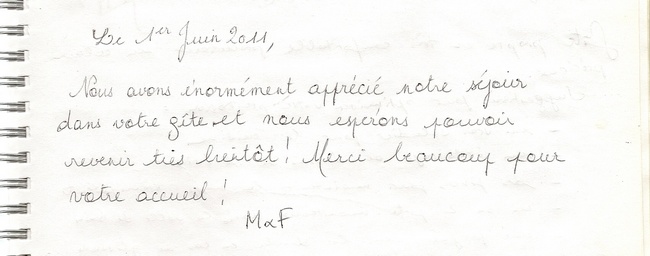 Le 1er Juin 2011,
Nous avons énormément apprécié notre séjour
dans votre gîte et nous espérons pouvoir
revenir très bientôt ! Merci beaucoup pour
votre accueil !
M&F